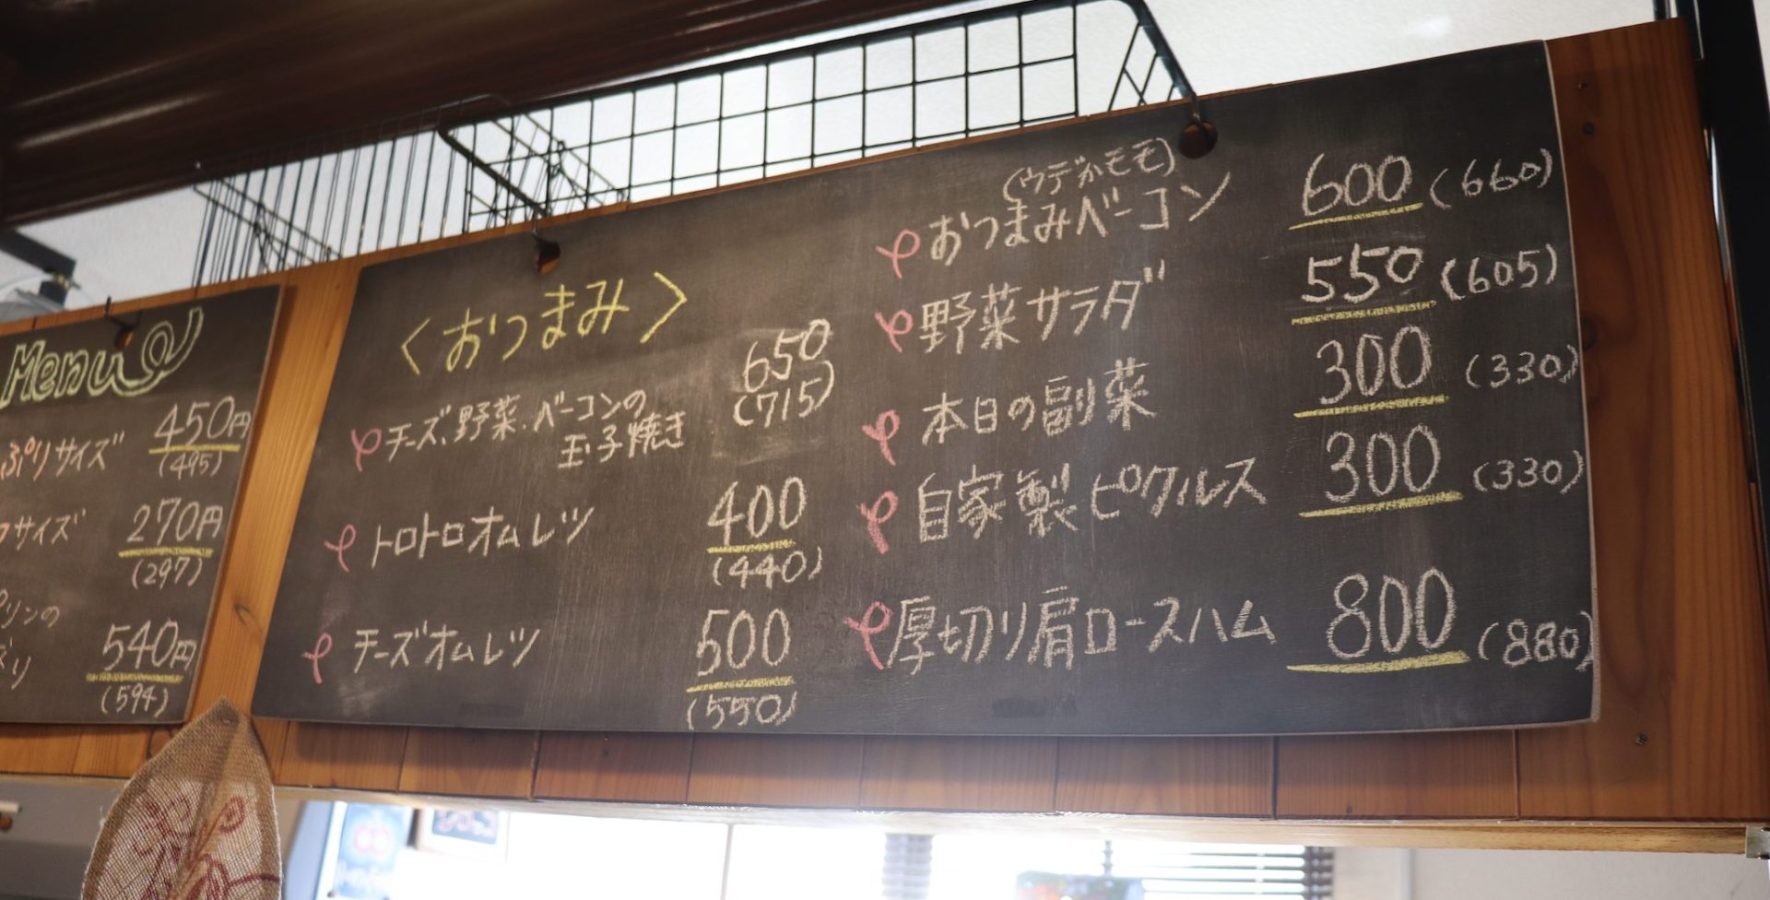 Menu
ぷりサイズ 450円
(495)
サイズ 270円
(297)
プリンの
540円
(594)
<おつまみ>
チーズ、野菜、ベーコンの
玉子焼き
650
(715)
トロトロオムレツ 400
(440)
チーズオムレツ 500
(550)
(ウデかモモ)
おつまみベーコン 600 (660)
野菜サラダ 550 (605)
本日の副菜 300 (330)
自家製ピクルス 300 (330)
厚切り肩ロースハム 800 (880)